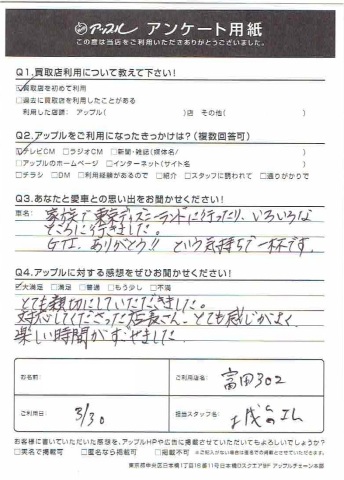 アップル アンケート用紙
この度は当店をご利用いただきありがとうございました。
Q1.買取店利用について教えて下さい!
☑買取店を初めて利用
□過去に買取店を利用したことがある
利用した店舗: アップル( )店 その他( )
Q2.アップルをご利用になったきっかけは?(複数回答可)
☑テレビCM □ラジオCM □新聞・雑誌(媒体名/ )
□アップルのホームページ □インターネット(サイト名 )
□チラシ □DM □利用経験があるので □紹介 □スタッフに誘われて □通りがかりで
Q3.あなたと愛車との思い出をお聞かせください!
車名: 家族で東京ディズニーランドに行ったり、いろいろな
ところに行きました。
GTI、ありがとう!! という気持ちで一杯です。
Q4.アップルに対する感想をぜひお聞かせください!
☑大満足 □満足 □普通 □もう少し □不満
とても親切にしていただきました。
対応してくださった店長さん、とても感じがよく
楽しい時間がすごせました。
お名前
ご利用店名: 富田302
ご利用日 3/30
担当スタッフ名:
お客様に書いていただいた感想を、アップルHPや広告に掲載させていただいてもよろしいでしょうか?
□実名で掲載可 □匿名なら掲載可 □掲載不可 ※ご記入がない場合は匿名での掲載とさせていただきます。
東京都中央区日本橋1丁目19番11号日本橋Dスクエア9F アップルチェーン本部